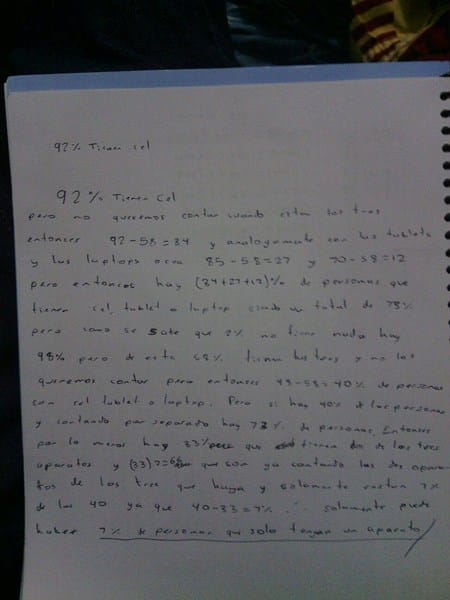 92% Tienen cel
92% Tienen Cel
pero no queremos contar cuando estan los tres
entonces 92-58=34 y analogamente con las tablets
y las laptops ocea 85-58=27 y 70-58=12
pero entonces hay (34+27+12)% de personas que
tienen cel, tablet o laptop un total de 73%
pero como se sabe que 2% no tiene nada hay
98% pero de esta 58% tienen los tres y no los
queremos contar pero entonces 98-58=40% de personas
con cel tablet o laptop. Pero si hay 40% de las personas
y contando por separado hay 73% de personas. Entonces
por lo menos hay 33% que tienen dos de los tres
aparatos y (33)2=66 que son ya contando las dos apara-
tos de los tres que haya y solamente restan 7%
de los 40 ya que 40-33=7% ∴ solamente puede
haber 7% de personas que solo tengan un aparato